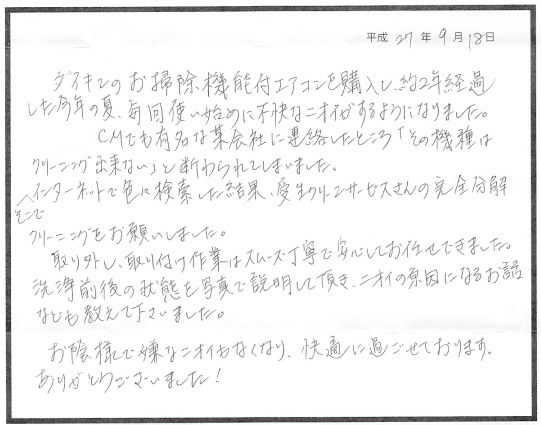 平成 27 年 9 月 18 日
ダイキンのお掃除機能付エアコンを購入し、約2年経過
した今年の夏、毎回使い始めに不快なニオイがするようになりました。
CMでも有名な某会社に連絡したところ「その機種は
クリーニング出来ない」と断わられてしまいました。
そこで
インターネットで色々検索した結果、愛生クリーンサービスさんの完全分解
クリーニングをお願いしました。
取り外し、取り付け作業はスムーズ丁寧で安心してお任せできました。
洗浄前後の状態を写真で説明して頂き、ニオイの原因になるお話
なども教えて下さいました。
お陰様で嫌なニオイもなくなり、快適に過ごせております。
ありがとうございました！